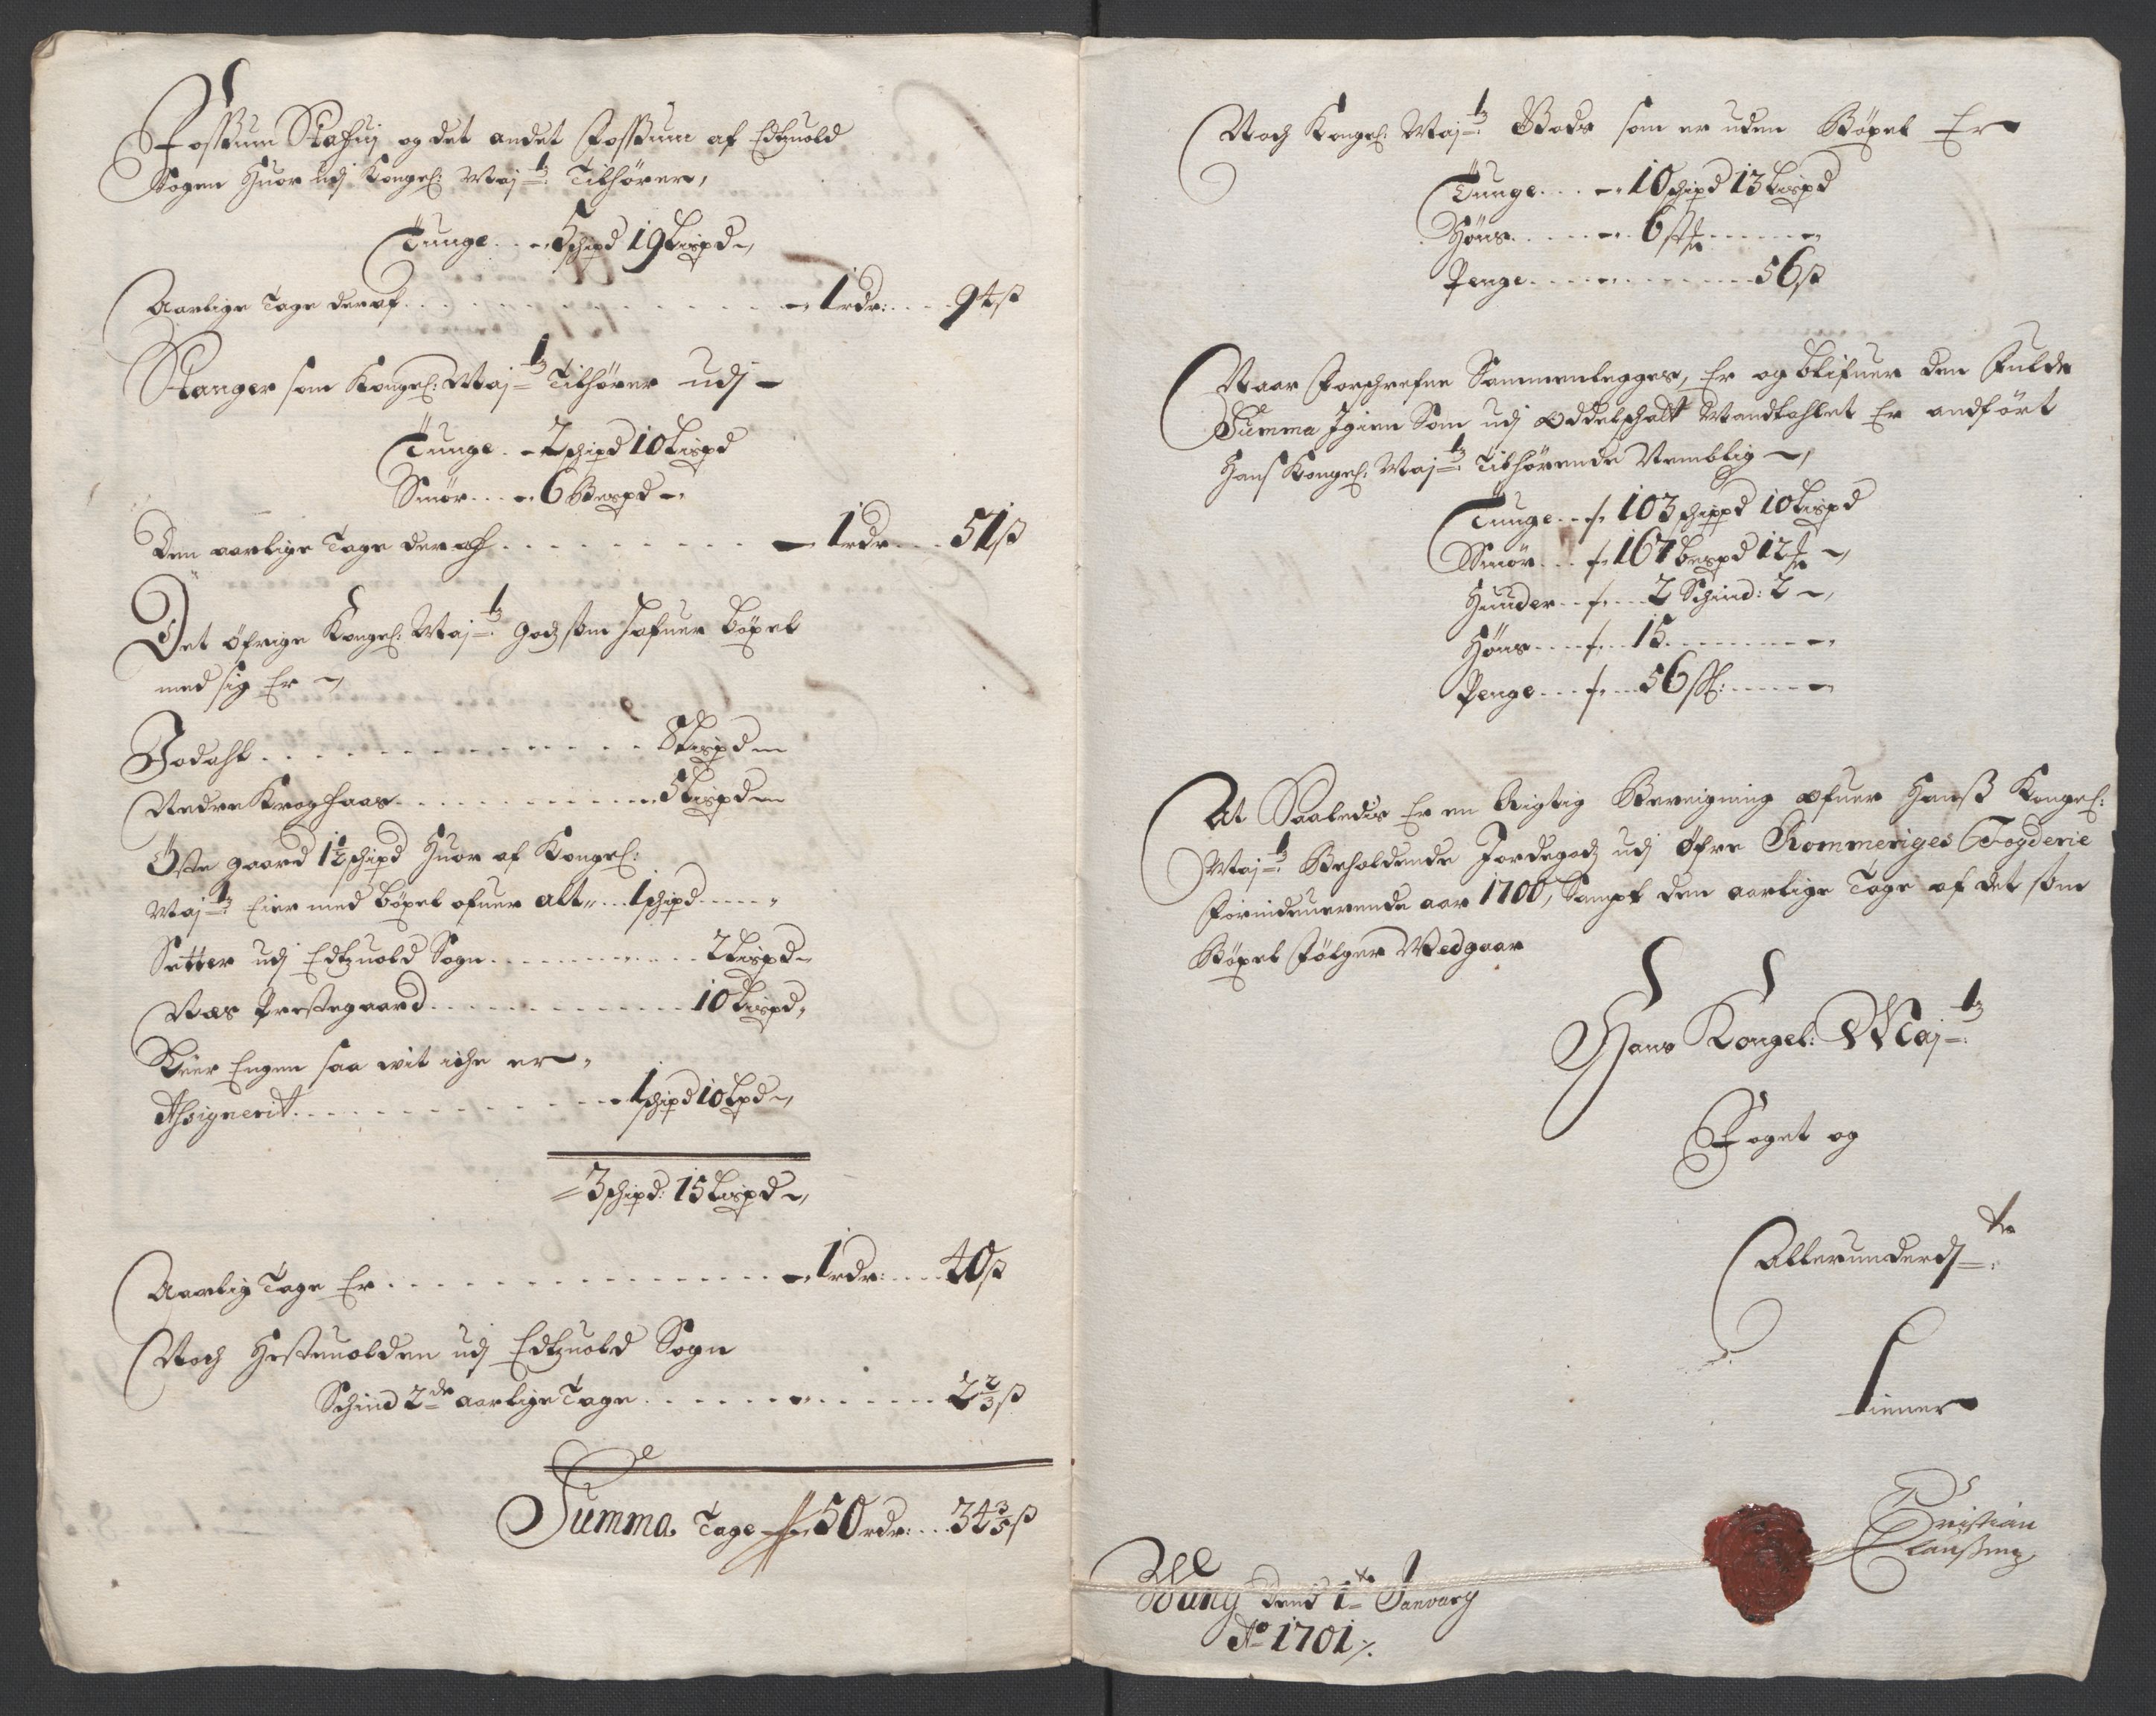 Fossum Stafui og det andet Fossum af Edtzuold
Sogen Huor udj Kongel: Maj:ts Tilhører,
Tunge . . - 5 schipd 19 Lispd -,
Aarlige Tage deraf . . . - 1 rdr: . . . 94 s
Stanger som Kongel: Maj:ts Tilhører udj -
Tunge . - 2 schipd 10 Lispd
Smør . . . - 6 Bespd -
Den aarlige Tage deraf . . . - 1 rdr . . . 51 s
Det øfrige Kongel: Maj:ts Godz som hafuer bøxel
med sig Er -,
Jodahl . . . 8 Lispd
Nedre Kroghaas . . . 5 Lispd
Øste gaard 1½ schipd Huor af Kongel:
Maj:ts Eier med bøxel ofuer alt „ . . 1 schipd . . . „
Setter udj Edtzuold Sogn . . . 2 Lispd
Næs Prestegaard . . . 10 Lispd,
Kier Engen saa wit iche er,
Assignerit . . . - 1 schipd 10 Lpd -,
3 schipd: 15 Lispd -,
Aarlig Tage Er . . . - 1 rdr: . . . 40 s
Noch Hestnolden udj Edtzuold Sogn
Schind 2de aarlige Tage . . . 2 2/3 s
Summa Tage - 50 rdr: . . . 34 3/5 s
Noch Kongel: Maj:ts Gods som er uden Bøxel Er
Tunge . . . - 10 schipd 13 Lispd
Høns . . . - 6 st
Penge . . . 56 s
Naar Forschrefne Sammenlegges, Er og blifuer den Fulde
Summa Igien Som udj Oddelschatt Mandtahlet Er andført
Hans Kongel: Maj:ts Tilhørende Nemblig -,
Tunge . . 103 schippd 10 Lispd
Smør . . . 167 bespd 12
Huuder . . . 2 Schind: 2 -,
Høns . . . 15 . . . -
Penge . . . 56 sk: . . . -
At Saaledis Er en Rigtig Bereigning ofuer Hanß Kongel:
Maj:ts Beholdende Jordegodz udj Øfre Rommeriges Fogderie
Forindeuerende aar 1700, Sampt den aarlige Tage af det som
Bøxel Følger Wedgaar
Hans Kongel: Maj:ts
Foget og
Allerunderd:te
tiener
Christian
Clausing
Wung dend 1te January
Ao 1701 ⁒